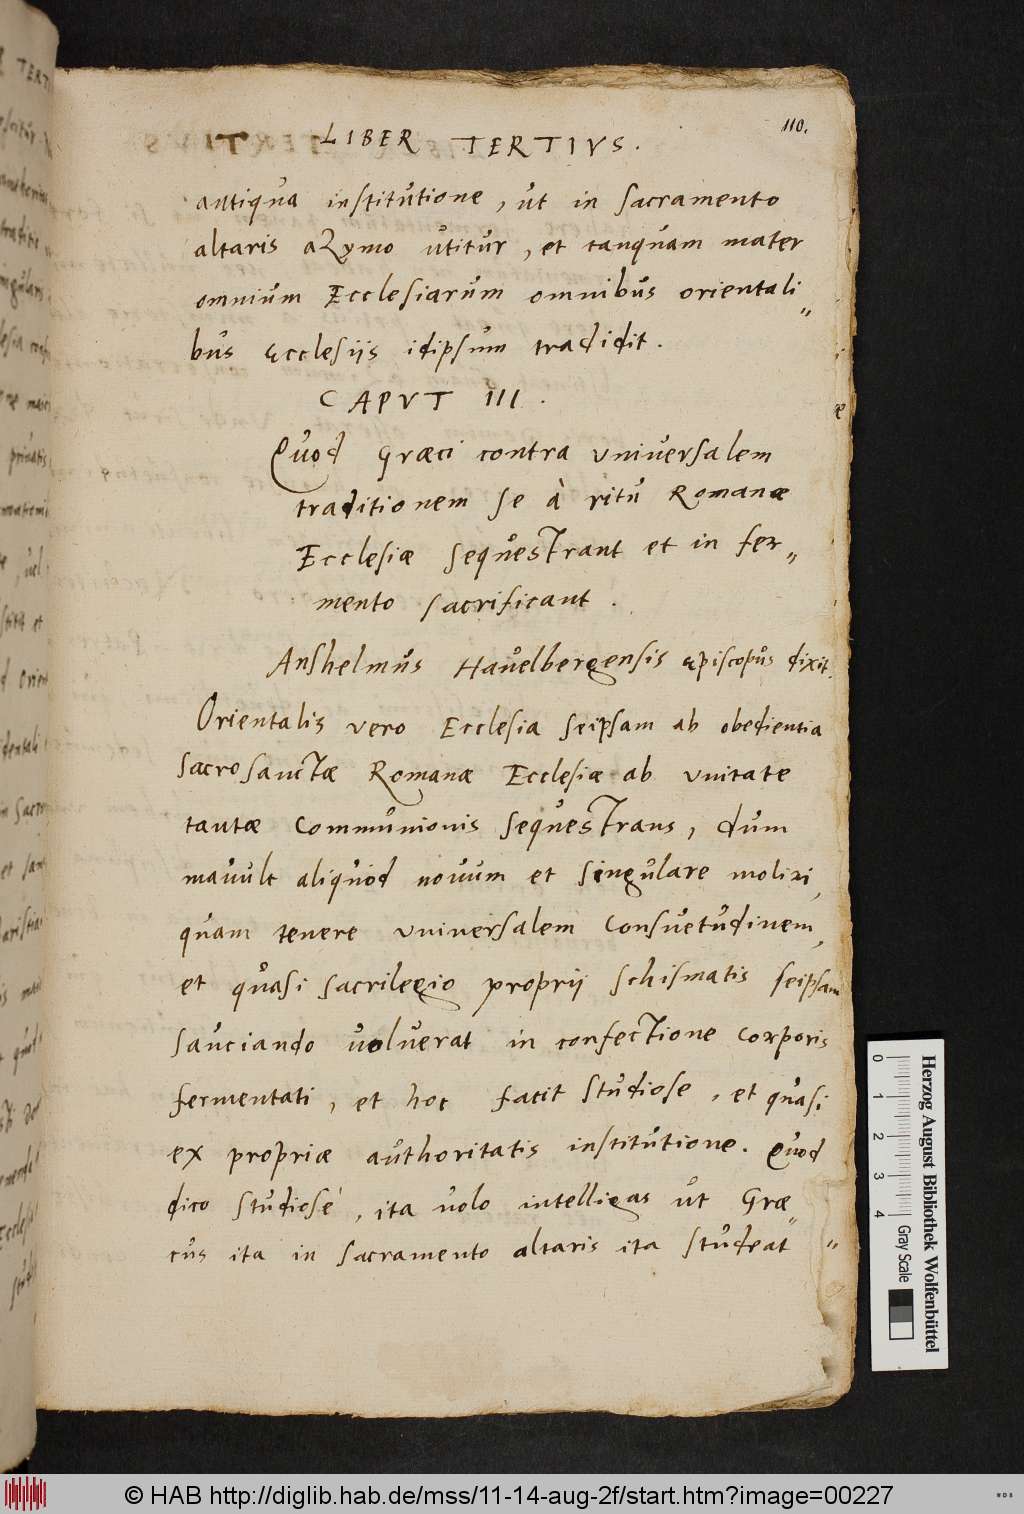 110.
LIBER TERTIVS.
antiqua institutione, ut in sacramento
altaris azymo utitur, et tanquam mater
omnium Ecclesiarum omnibus orientali
bus ecclesijs idipsum tradidit.
CAPVT III.
Quod Græci contra universalem
traditionem se à ritu Romanæ
Ecclesiæ sequestrant et in fer
mento sacrificant.
Anshelmus Havelbergensis episcopus dixit.
Orientalis vero Ecclesia seipsam ab obedientia
sacrosanctæ Romanæ Ecclesiæ ab unitate
tantæ communionis sequestrans, dum
mavult aliquod novum et singulare moliri,
quam tenere universalem consuetudinem,
et quasi sacrilegio proprij schismatis seipsam
sauciando voluerat in confectione corporis
fermentati, et hoc facit studiose, et quasi
ex propriæ authoritatis institutione. Quod
dico studiosè, ita volo intelligas ut Græ
cus ita in sacramento altaris ita studeat
Herzog August Bibliothek Wolfenbüttel
0 1 2 3 4
Gray Scale
© HAB http://diglib.hab.de/mss/11-14-aug-2f/start.htm?image=00227